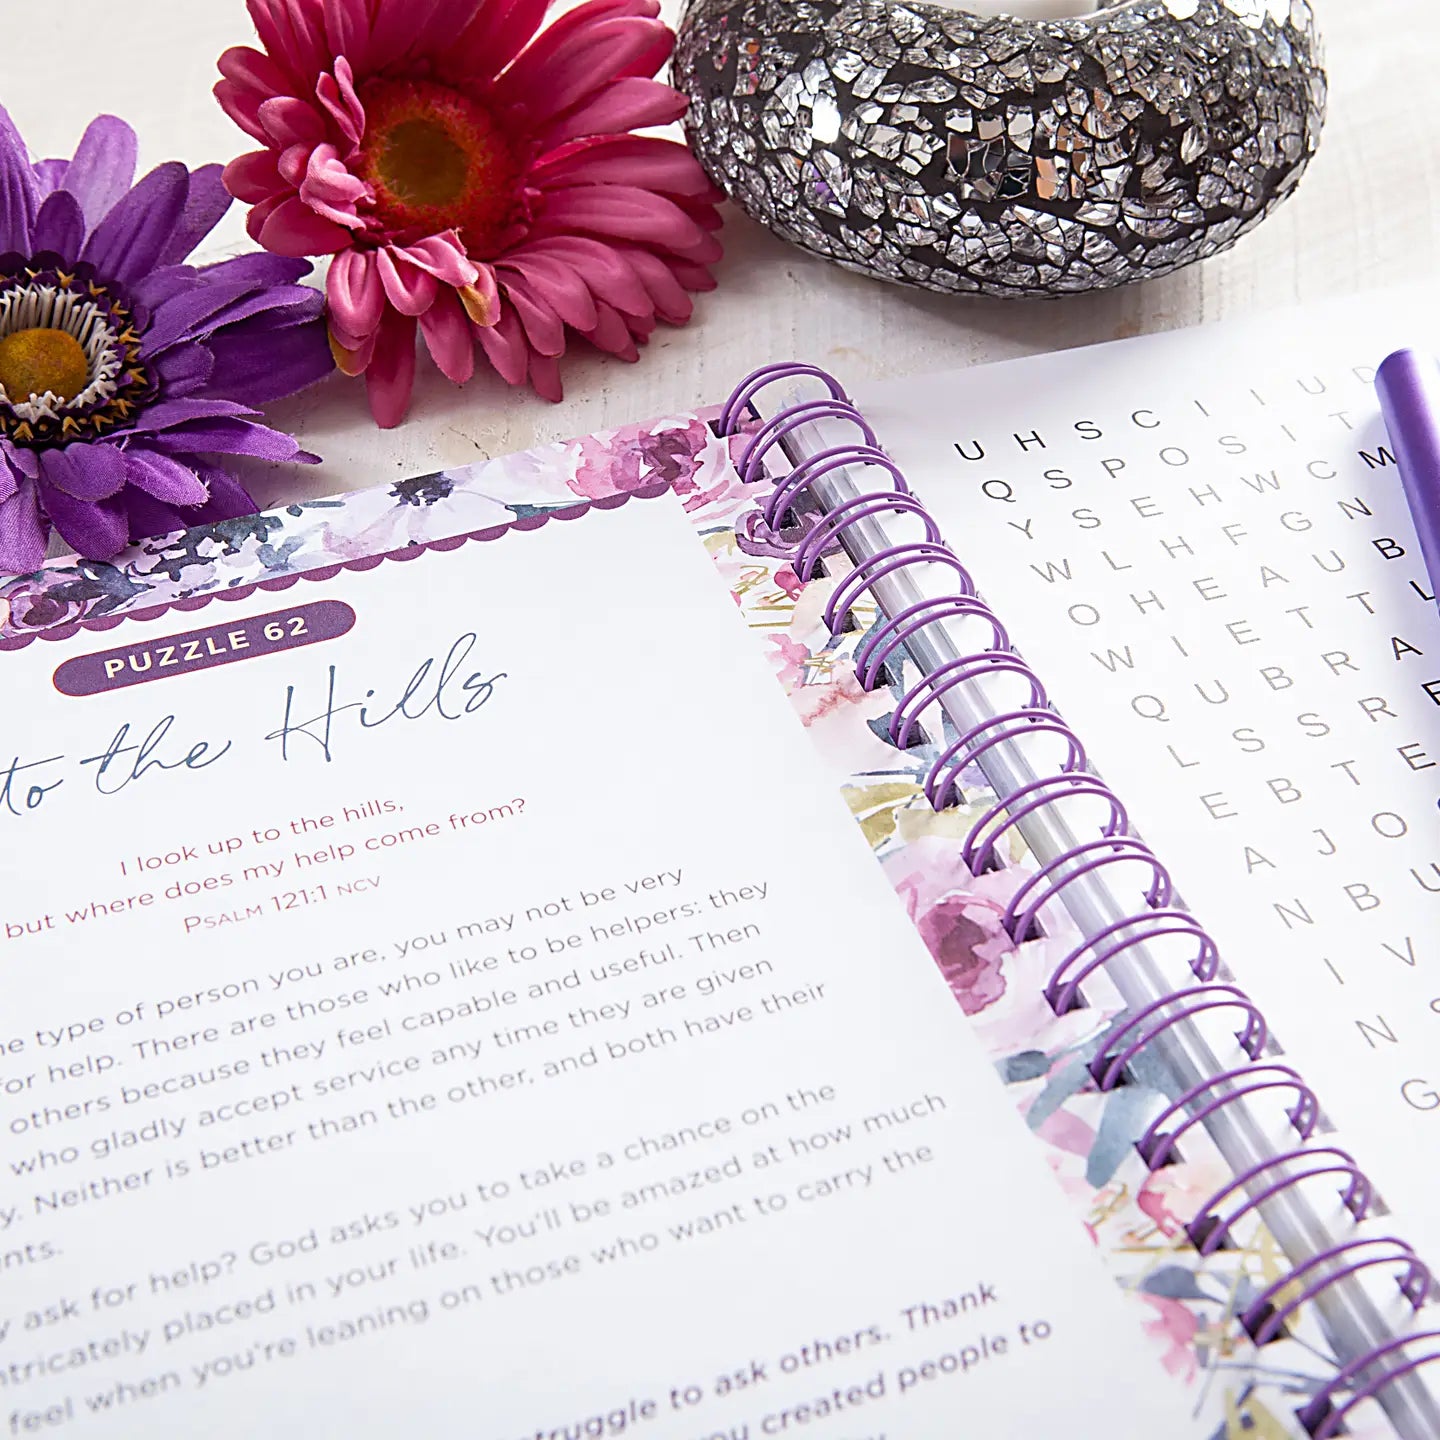 PUZZLE 62
to the Hills
I look up to the hills,
but where does my help come from?
PSALM 121:1 NCV
type of person you are, you may not be very
for help. There are those who like to be helpers: they
others because they feel capable and useful. Then
who gladly accept service any time they are given
Neither is better than the other, and both have their
ask for help? God asks you to take a chance on the
placed in your life. You'll be amazed at how much
feel when you're leaning on those who want to carry the
struggle to ask others. Thank
you created people to
U H S C I I U D
Q S P O S I T
Y S E H W C M
W L H F G N B
O H E A U L
W I E T T A
Q U B R
L S S R
E B T E
A J O
N B U
I V
N
G